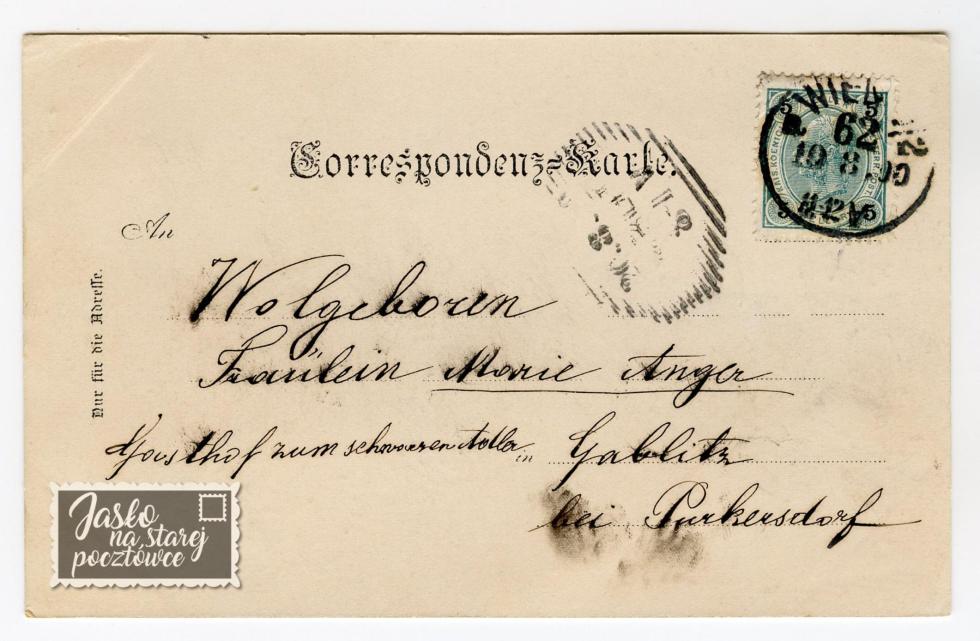 Correspondenz-Karte.
WIEN
62
19 8 00
5 5
5 5
An
Nur für die Adresse.
Wolgeboren
Fräulein Marie Anger
Gasthof zum schwarzen Adler in Gablitz
bei Purkersdorf
Jasło
na starej
pocztówce